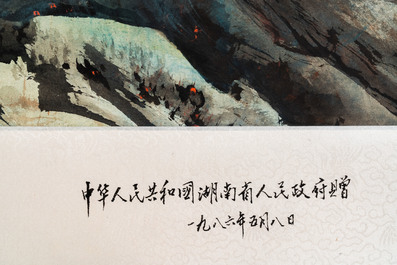 中华人民共和國湖南省人民政府贈
一九八六年五月八日